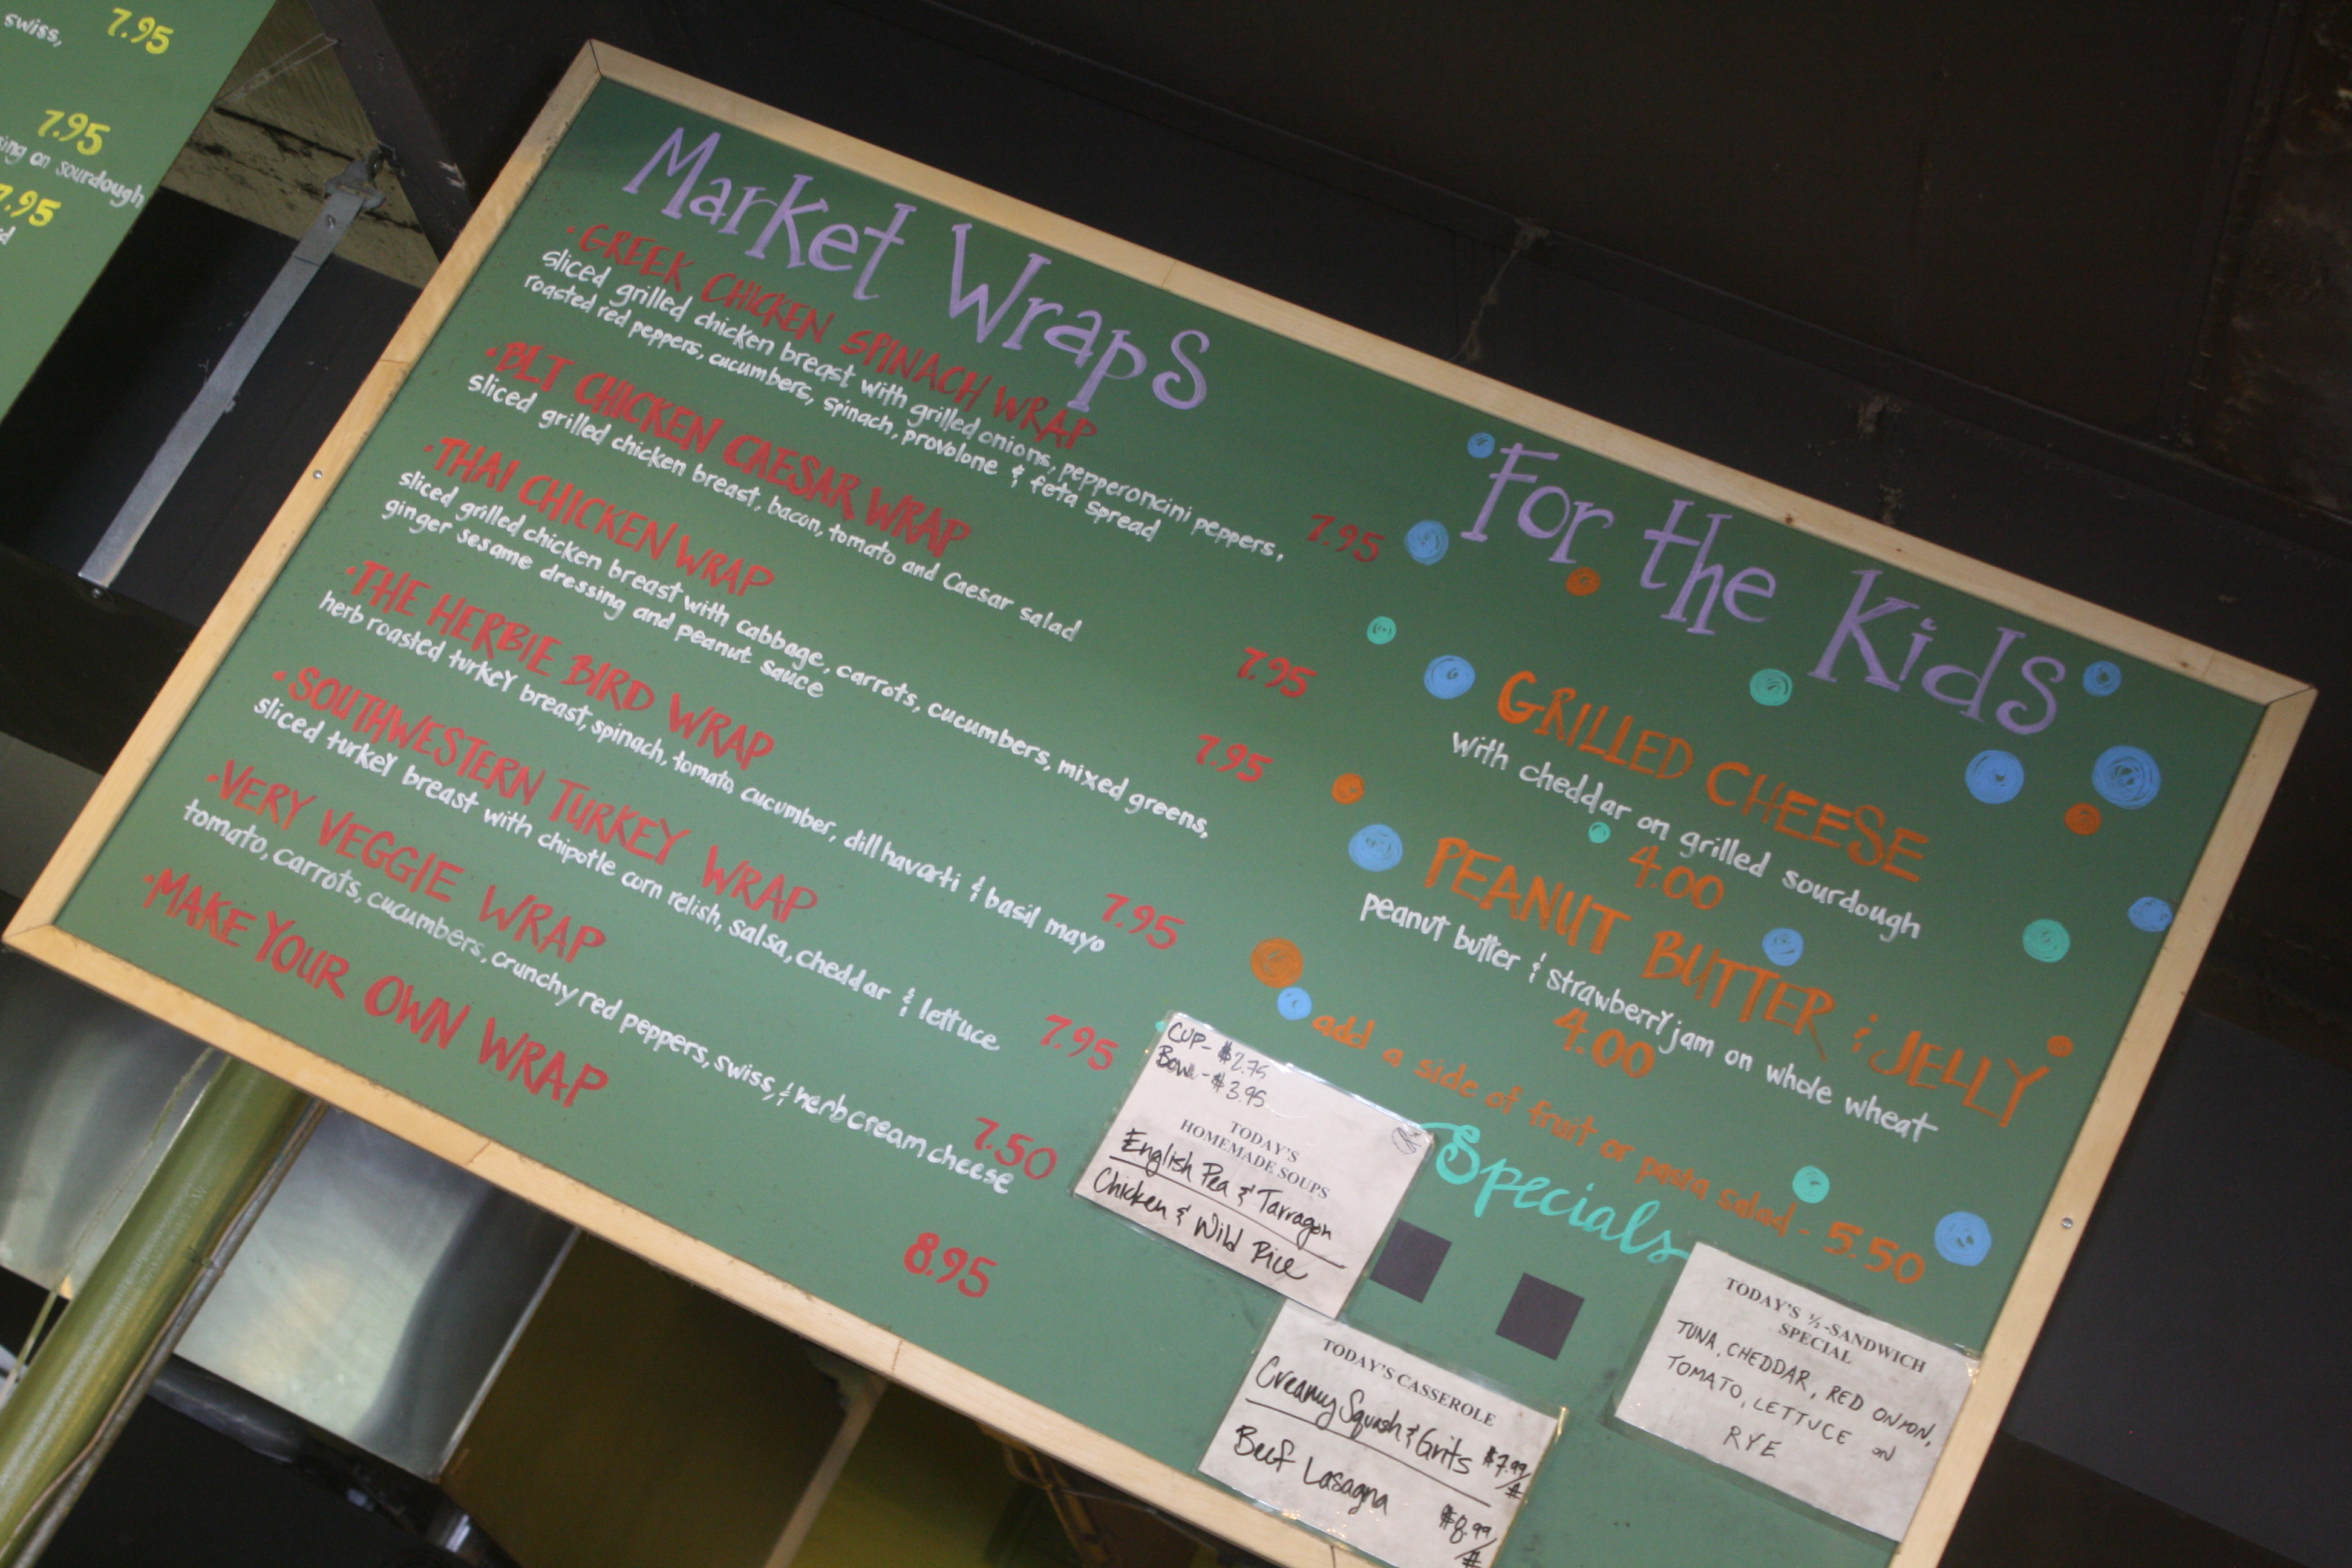 swiss, 7.95
7.95
sing on sourdough
7.95
Market Wraps
• GREEK CHICKEN SPINACH WRAP
sliced grilled chicken breast with grilled onions, pepperoncini peppers,
roasted red peppers, cucumbers, spinach, provolone & feta spread 7.95
• BLT CHICKEN CAESAR WRAP
sliced grilled chicken breast, bacon, tomato and Caesar salad 7.95
• THAI CHICKEN WRAP
sliced grilled chicken breast with cabbage, carrots, cucumbers, mixed greens,
ginger sesame dressing and peanut sauce 7.95
• THE HERBIE BIRD WRAP
herb roasted turkey breast, spinach, tomato, cucumber, dill havarti & basil mayo 7.95
• SOUTHWESTERN TURKEY WRAP
sliced turkey breast with chipotle corn relish, salsa, cheddar & lettuce 7.95
• VERY VEGGIE WRAP
tomato, carrots, cucumbers, crunchy red peppers, swiss, & herb cream cheese 7.50
• MAKE YOUR OWN WRAP 8.95
For the Kids
GRILLED CHEESE
with cheddar on grilled sourdough
4.00
PEANUT BUTTER & JELLY
peanut butter & strawberry jam on whole wheat
4.00
add a side of fruit or pasta salad - 5.50
Specials
CUP - $2.75
Bowl - $3.95
TODAY'S
HOMEMADE SOUPS
English Pea & Tarragon
Chicken & Wild Rice
TODAY'S CASSEROLE
Creamy Squash & Grits $7.99/#
Beef Lasagna $8.99/#
TODAY'S ½-SANDWICH
SPECIAL
TUNA, CHEDDAR, RED ONION,
TOMATO, LETTUCE ON
RYE